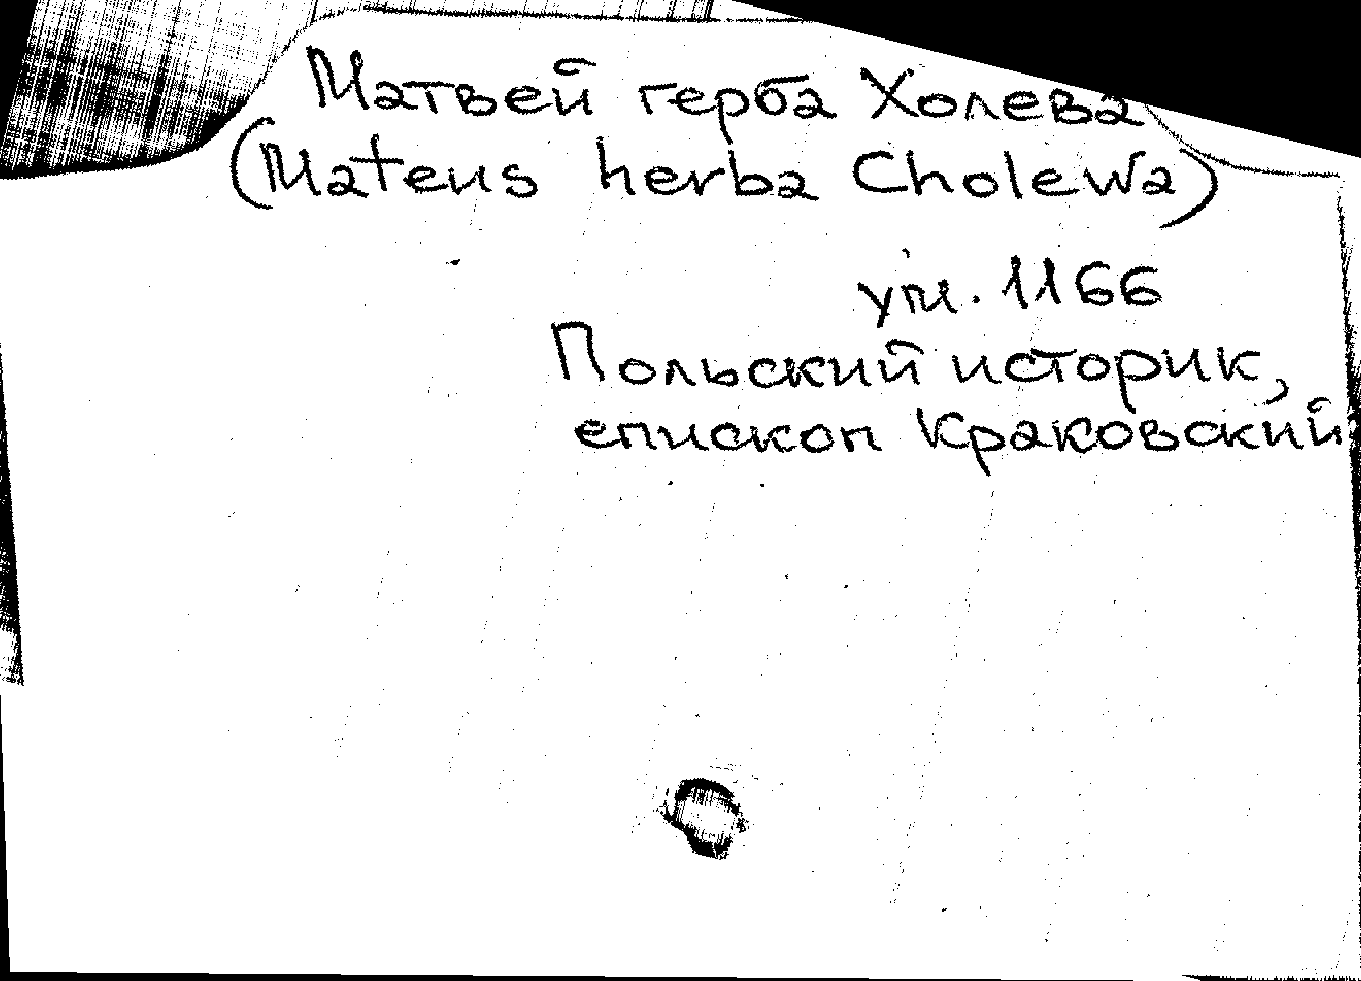 Матвей герба Холева
(Mateus herba Cholewa)
ум. 1166
Польский историк,
епископ Краковский